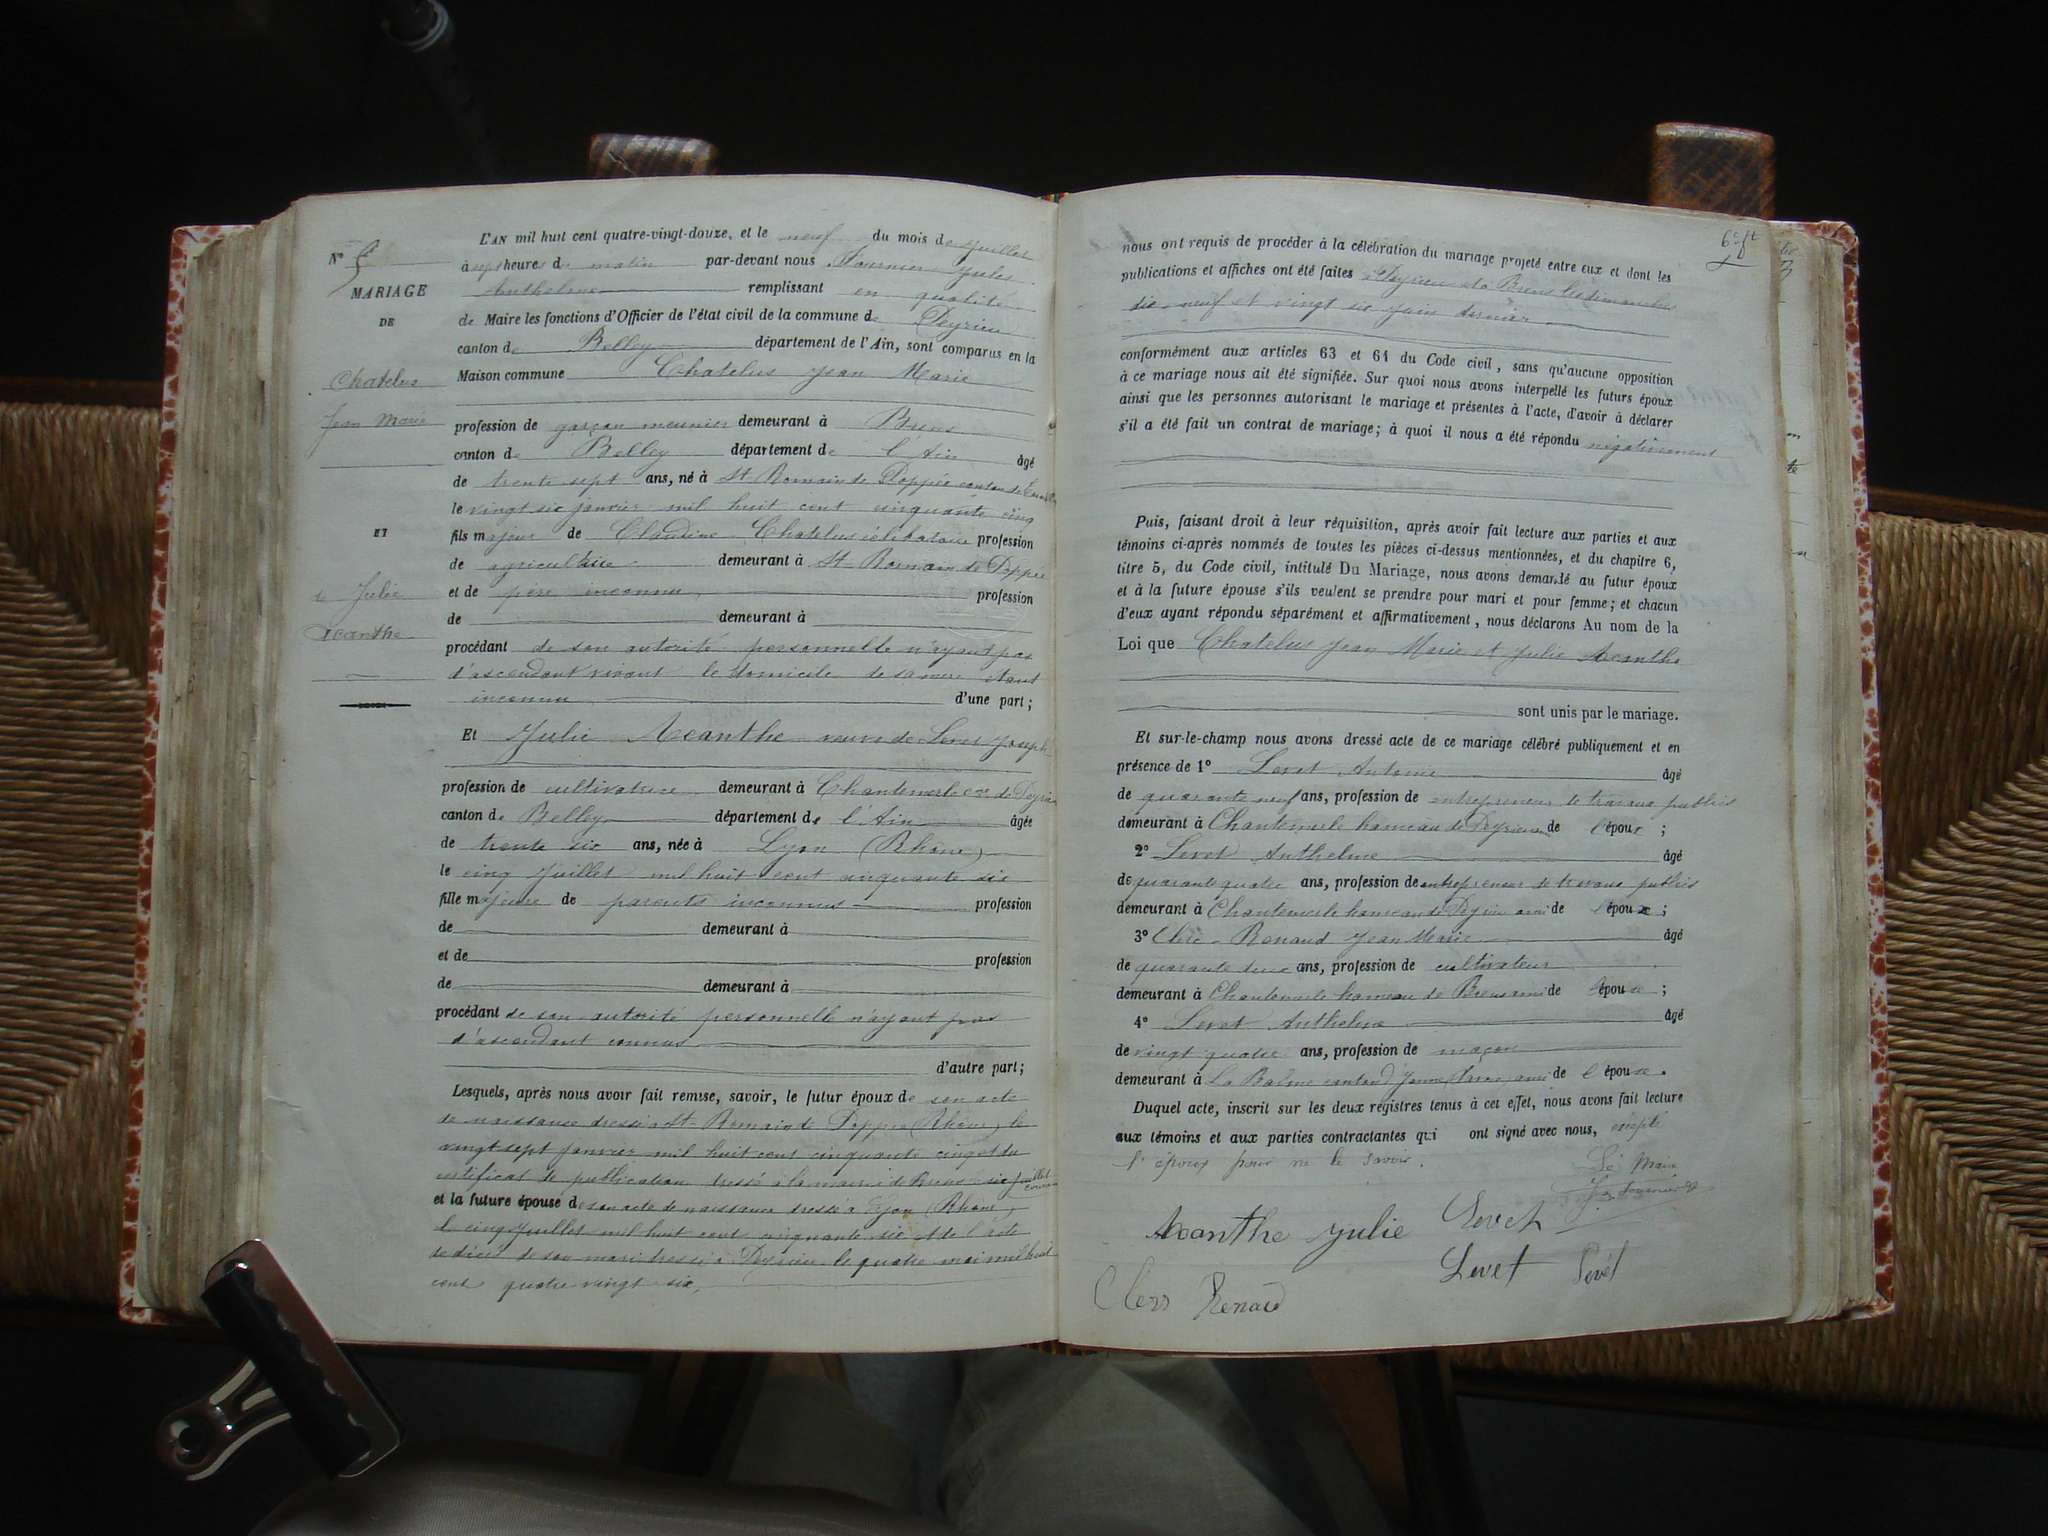 Nº 5
MARIAGE
DE
Chatelus
Jean Marie
ET
de Julie
Acanthe
L'AN mil huit cent quatre-vingt-douze, et le neuf du mois de juillet
à sept heures du matin par-devant nous Fournier Jules
Anthelme remplissant en qualité
de Maire les fonctions d'Officier de l'état civil de la commune de Peyrieu
canton de Belley département de l'Ain, sont comparus en la
Maison commune Chatelus Jean Marie
profession de garçon meunier demeurant à Brens
canton de Belley département de l'Ain âgé
de trente sept ans, né à St Romain de Poppée canton de
le vingt six janvier mil huit cent cinquante cinq
fils majeur de Claudine Chatelus célibataire profession
de agricultrice demeurant à St Romain de Poppée
et de père inconnu profession
de demeurant à
procédant de son autorité personnelle n'ayant pas
d'ascendant vivant le domicile de sa mère étant
inconnu d'une part;
Et Julie Acanthe veuve de Levet Joseph
profession de cultivatrice demeurant à Chantemerle cne de Peyrieu
canton de Belley département de l'Ain âgée
de trente six ans, née à Lyon (Rhône)
le cinq Juillet mil huit cent cinquante six
fille majeure de parents inconnus profession
de demeurant à
et de profession
de demeurant à
procédant de son autorité personnelle n'ayant pas
d'ascendant connus
d'autre part;
Lesquels, après nous avoir fait remise, savoir, le futur époux de son acte
de naissance dressé à St Romain de Poppée (Rhône) le
vingt sept janvier mil huit cent cinquante cinq et du
certificat de publication dressé à la mairie de Brens le six juillet
courant
et la future épouse de son acte de naissance dressé à Lyon (Rhône)
le cinq Juillet mil huit cent cinquante six et de l'acte
de décès de son mari dressé à Peyrieu le quatre mai mil huit
cent quatre vingt six,
6e ft
nous ont requis de procéder à la célébration du mariage projeté entre eux et dont les
publications et affiches ont été faites à Peyrieu et à Brens les dimanches
dix neuf et vingt six juin dernier
conformément aux articles 63 et 64 du Code civil, sans qu'aucune opposition
à ce mariage nous ait été signifiée. Sur quoi nous avons interpellé les futurs époux
ainsi que les personnes autorisant le mariage et présentes à l'acte, d'avoir à déclarer
s'il a été fait un contrat de mariage; à quoi il nous a été répondu négativement
Puis, faisant droit à leur réquisition, après avoir fait lecture aux parties et aux
témoins ci-après nommés de toutes les pièces ci-dessus mentionnées, et du chapitre 6,
titre 5, du Code civil, intitulé Du Mariage, nous avons demandé au futur époux
et à la future épouse s'ils veulent se prendre pour mari et pour femme; et chacun
d'eux ayant répondu séparément et affirmativement, nous déclarons Au nom de la
Loi que Chatelus Jean Marie et Julie Acanthe
sont unis par le mariage.
Et sur-le-champ nous avons dressé acte de ce mariage célébré publiquement et en
présence de 1º Levet Antoine âgé
de quarante neuf ans, profession de entrepreneur de travaux publics
demeurant à Chantemerle hameau de Peyrieu de l'époux;
2º Levet Anthelme âgé
de quarante quatre ans, profession de entrepreneur de travaux publics
demeurant à Chantemerle hameau de Peyrieu ami de l'époux;
3º Clerc-Renaud Jean Marie âgé
de quarante deux ans, profession de cultivateur
demeurant à Chantemerle hameau de Brens ami de l'épouse;
4º Levet Anthelme âgé
de vingt quatre ans, profession de maçon
demeurant à La Balme canton d'Yenne ami de l'épouse.
Duquel acte, inscrit sur les deux registres tenus à cet effet, nous avons fait lecture
aux témoins et aux parties contractantes qui ont signé avec nous, excepté
l'époux pour ne le savoir.
Le Maire
J. Fournier
Acanthe Julie Levet
Levet Levet
Clerc Renaud